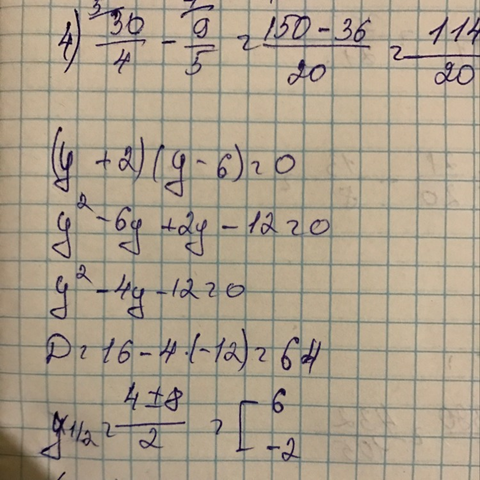 4) 30/4 - 9/5 = (150 - 36)/20 = 114/20
(y + 2)(y - 6) = 0
y² - 6y + 2y - 12 = 0
y² - 4y - 12 = 0
D = 16 - 4·(-12) = 64
y₁/₂ = (4 ± 8)/2 = [ 6
-2